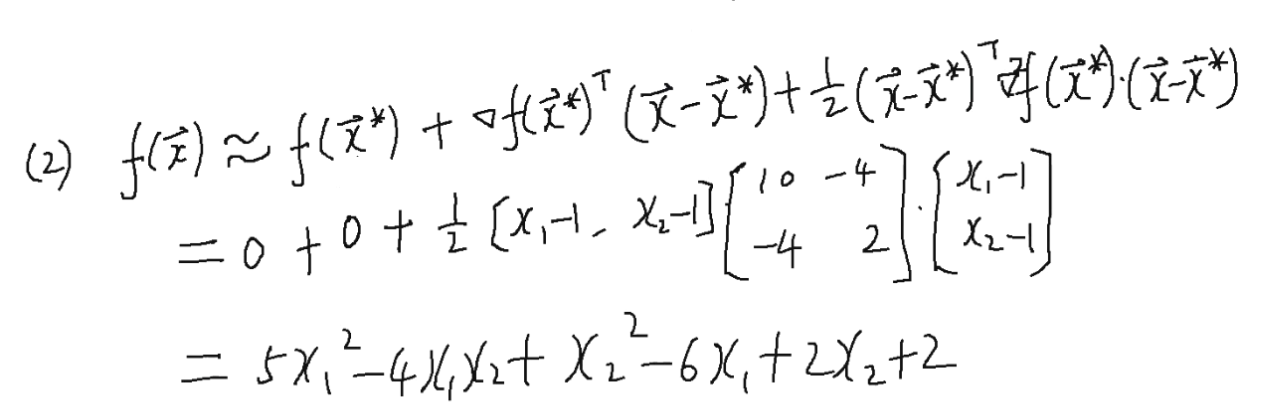 (2) $f(\vec{x}) \approx f(\vec{x}^*) + \nabla f(\vec{x}^*)^T (\vec{x}-\vec{x}^*) + \frac{1}{2} (\vec{x}-\vec{x}^*)^T \nabla^2 f(\vec{x}^*) \cdot (\vec{x}-\vec{x}^*)$
$= 0 + 0 + \frac{1}{2} [x_1-1, x_2-1] \begin{bmatrix} 10 & -4 \\ -4 & 2 \end{bmatrix} \cdot \begin{bmatrix} x_1-1 \\ x_2-1 \end{bmatrix}$
$= 5x_1^2 - 4x_1x_2 + x_2^2 - 6x_1 + 2x_2 + 2$